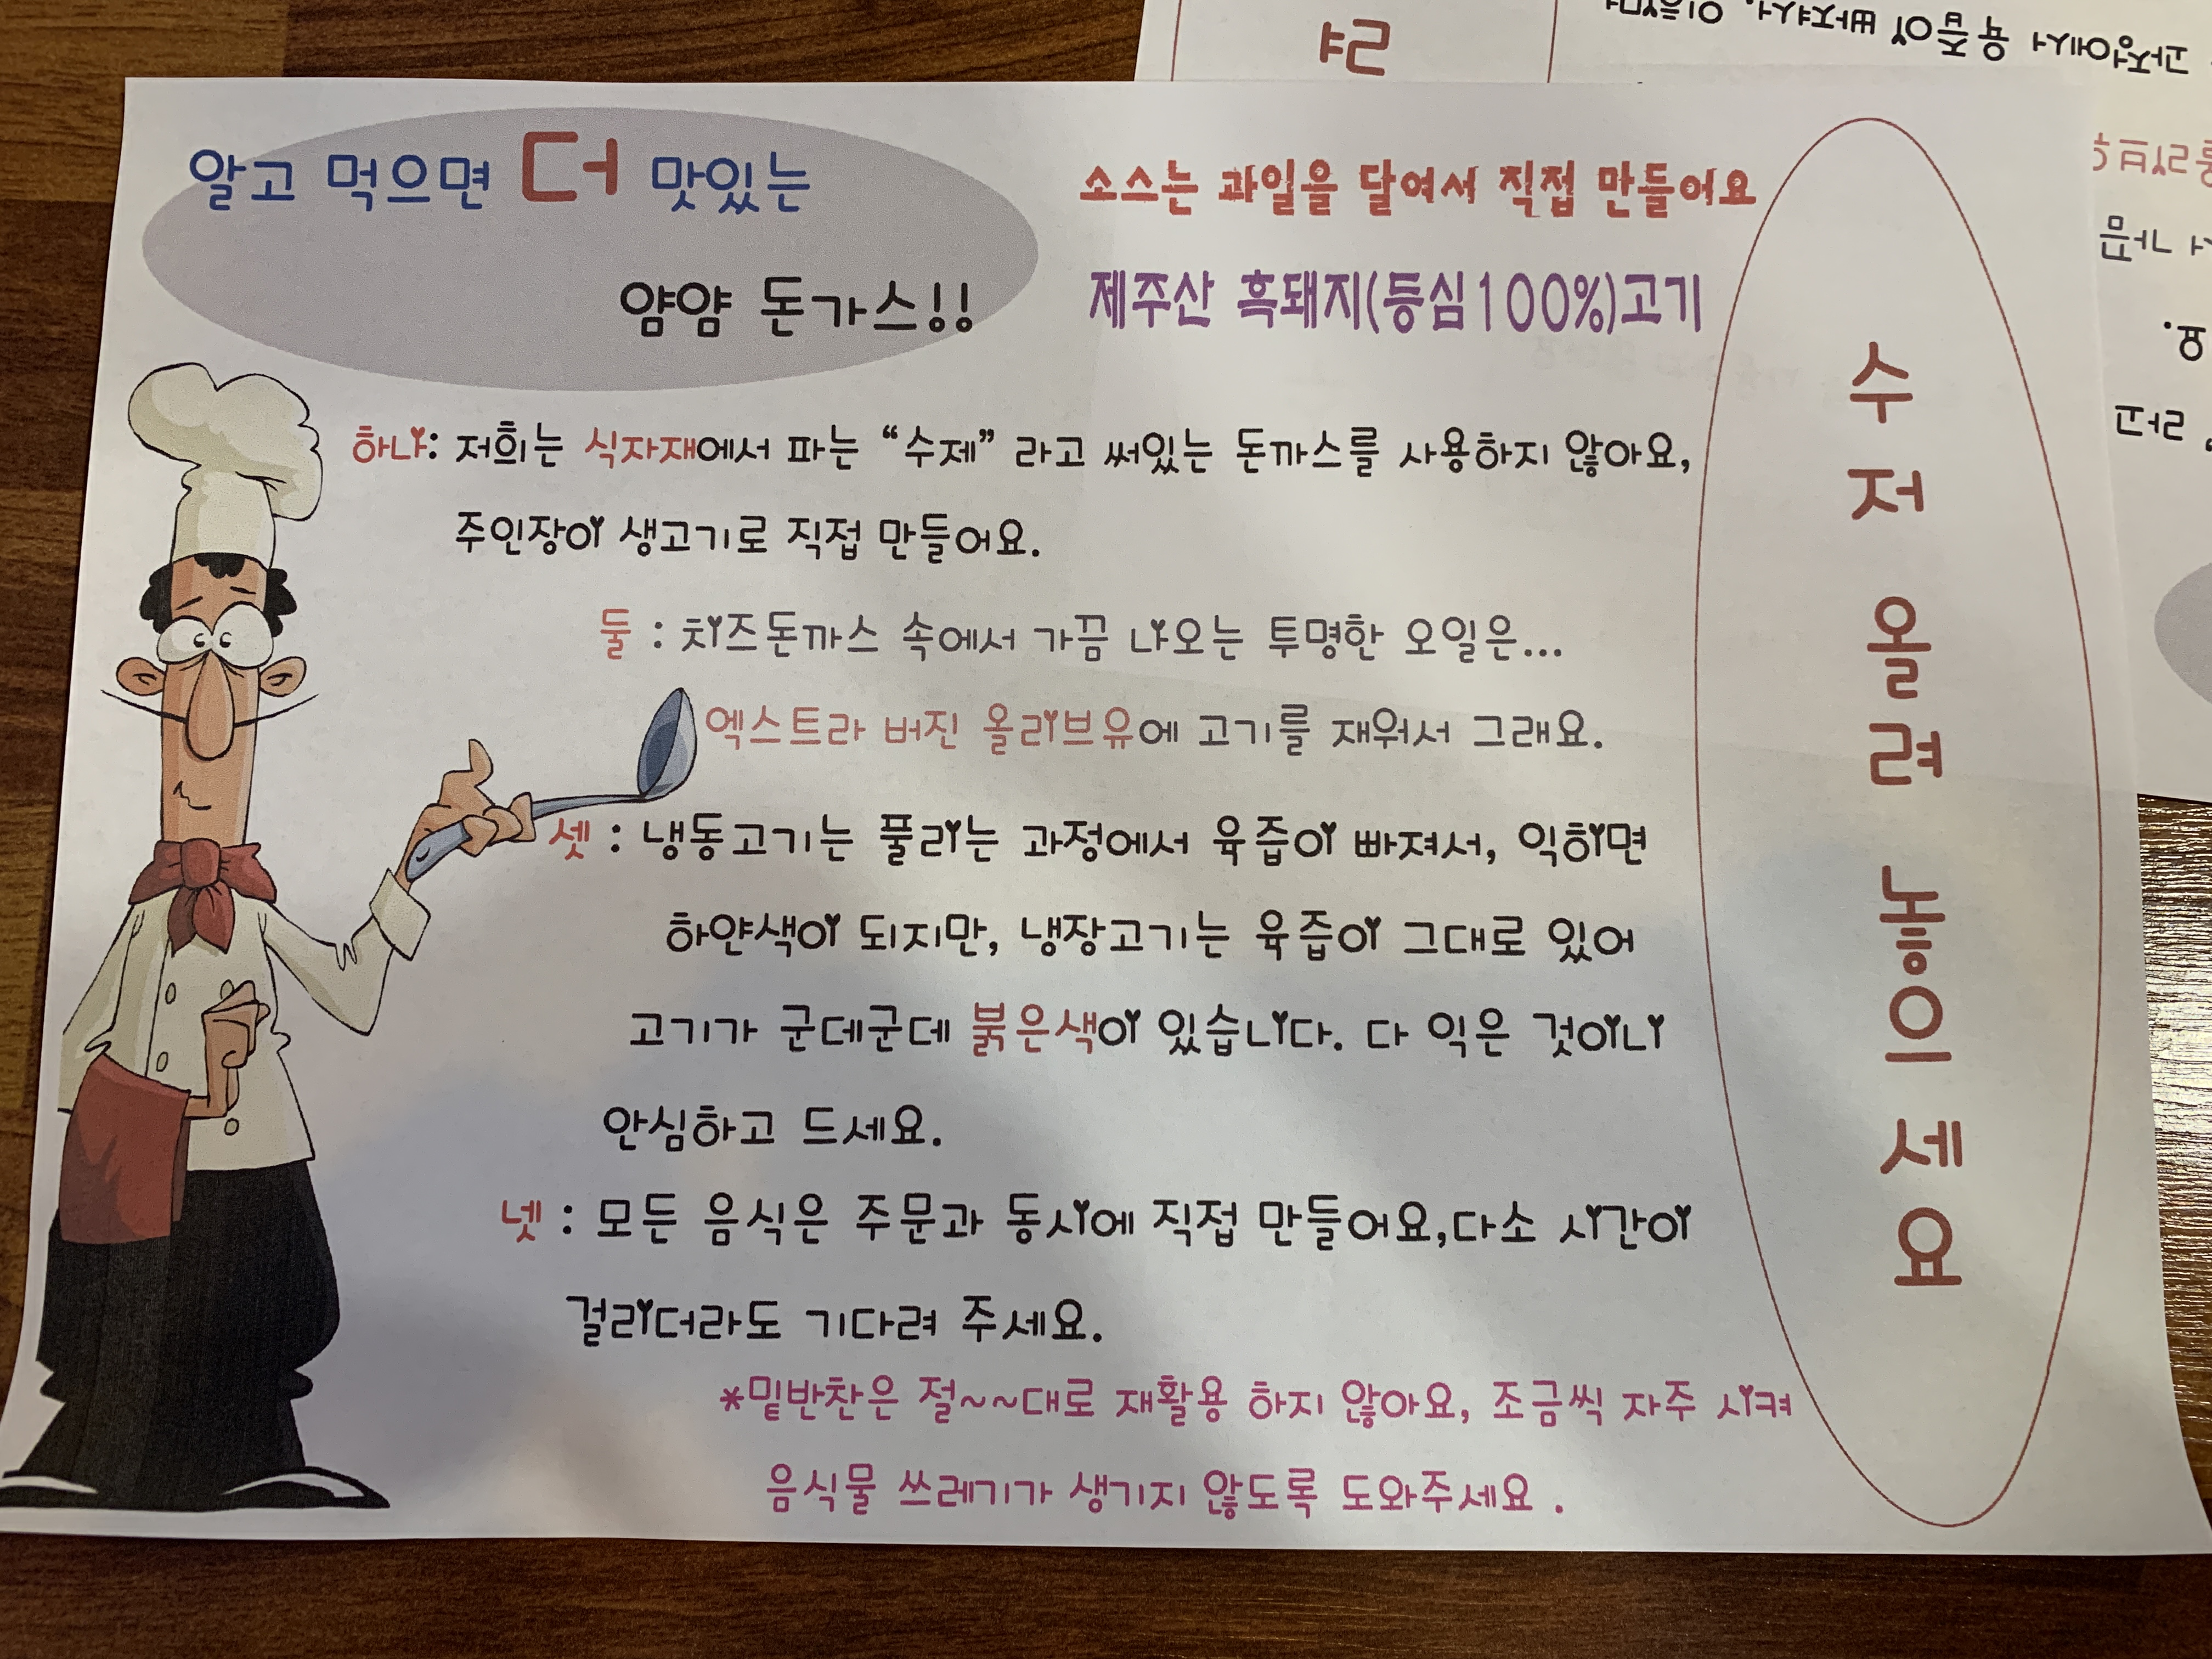 알고 먹으면 더 맛있는
얌얌 돈가스!!
소스는 과일을 달여서 직접 만들어요
제주산 흑돼지(등심100%)고기
하나: 저희는 식자재에서 파는 “수제” 라고 써있는 돈까스를 사용하지 않아요,
주인장이 생고기로 직접 만들어요.
둘 : 치즈돈까스 속에서 가끔 나오는 투명한 오일은...
엑스트라 버진 올리브유에 고기를 재워서 그래요.
셋 : 냉동고기는 풀리는 과정에서 육즙이 빠져서, 익히면
하얀색이 되지만, 냉장고기는 육즙이 그대로 있어
고기가 군데군데 붉은색이 있습니다. 다 익은 것이니
안심하고 드세요.
넷 : 모든 음식은 주문과 동시에 직접 만들어요,다소 시간이
걸리더라도 기다려 주세요.
*밑반찬은 절~~대로 재활용 하지 않아요, 조금씩 자주 시켜
음식물 쓰레기가 생기지 않도록 도와주세요 .
수저올려놓으세요
과정에서 육즙이 빠져서,